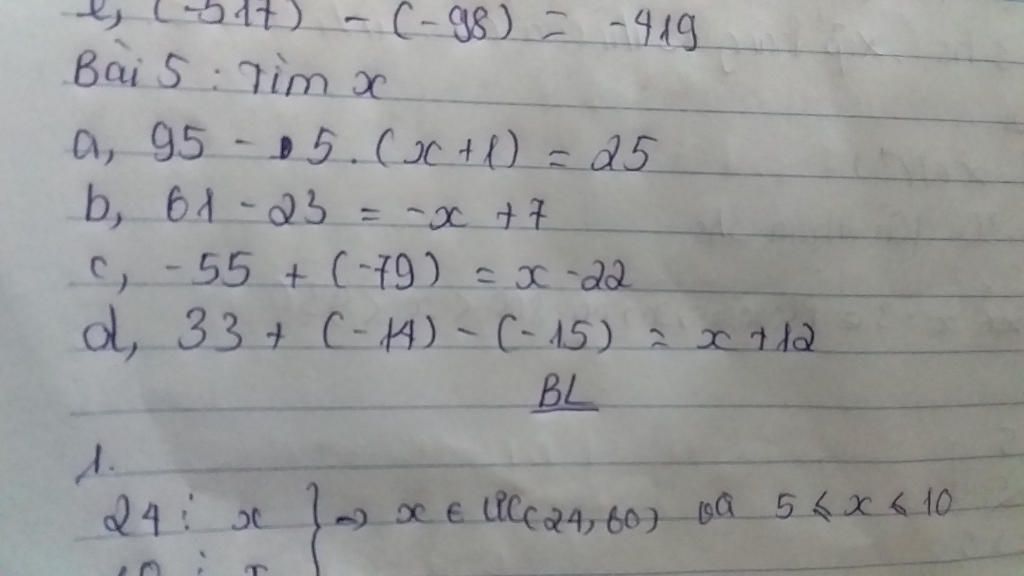 e, (-517) - (-98) = -419
Bài 5 : Tìm x
a, 95 - 5 . (x + 1) = 25
b, 61 - 23 = -x + 7
c, -55 + (-79) = x - 22
d, 33 + (-14) - (-15) = x + 12
BL
1.
24 ⋮ x } => x ∈ ƯC(24, 60) và 5 ≤ x ≤ 10